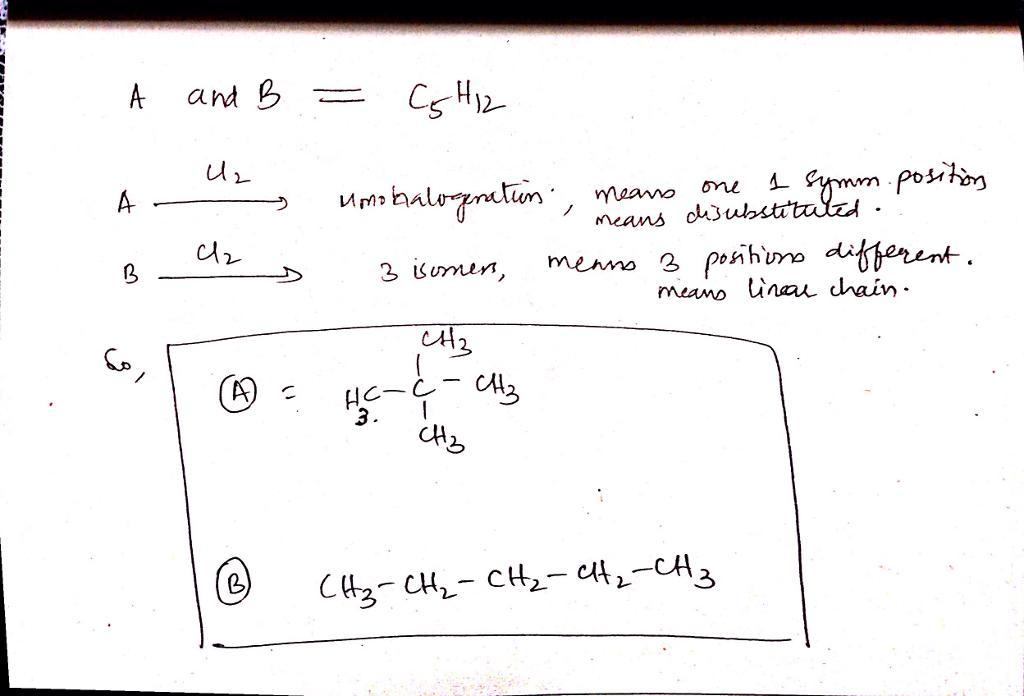 A and B = C5H12
Cl2
A → monohalogenation, means one 1 symm. position
means disubstituted.
Cl2
B → 3 isomers, means 3 positions different.
means linear chain.
So,
CH3
|
(A) = HC – C – CH3
3. |
CH3
(B) CH3 – CH2 – CH2 – CH2 – CH3